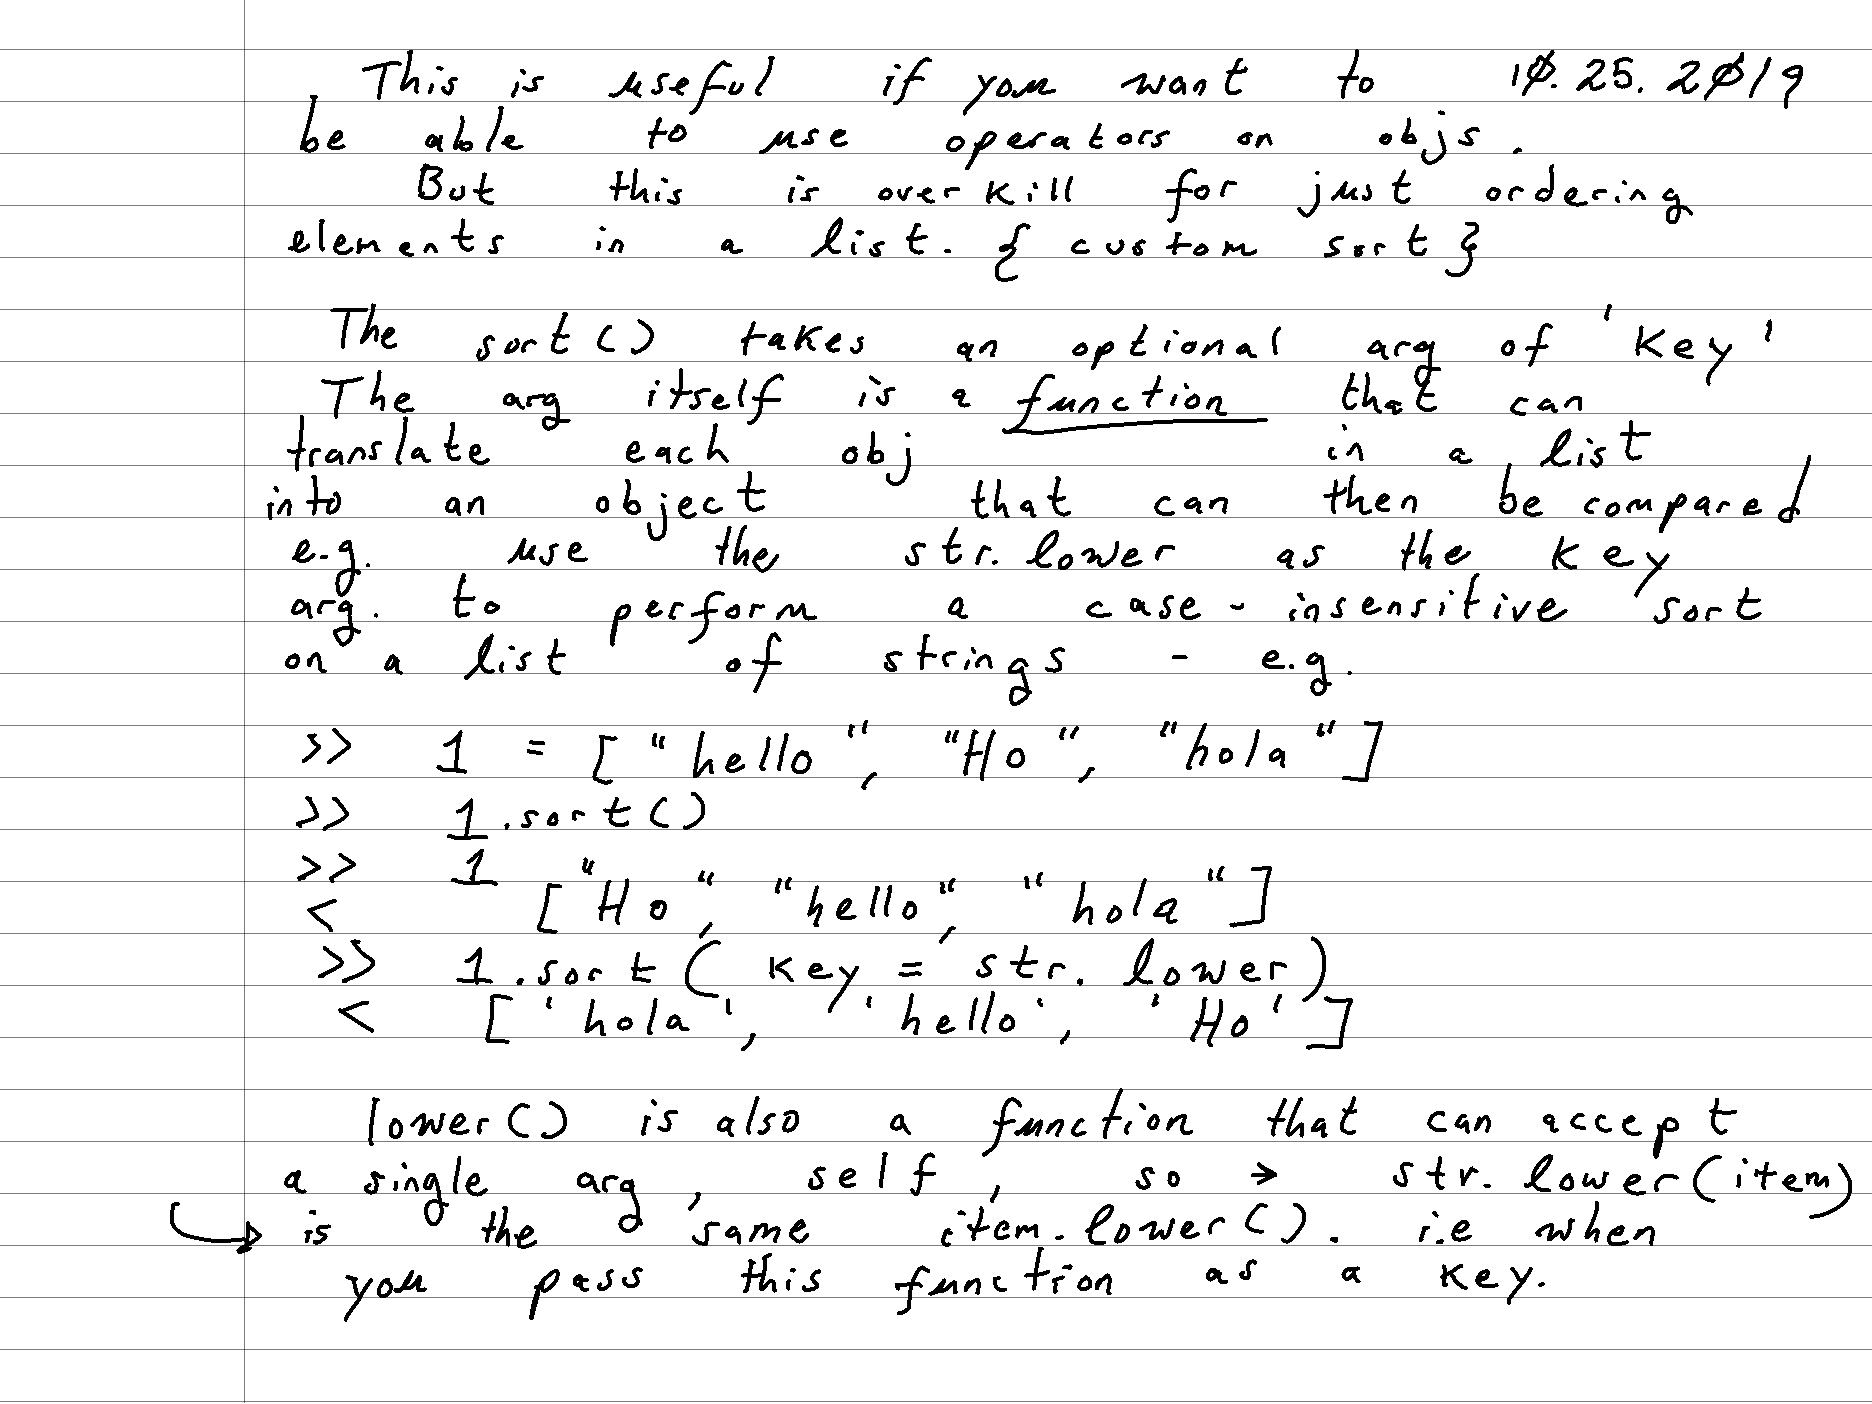 This is useful if you want to 10.25.2019
be able to use operators on objs.
But this is overkill for just ordering
elements in a list. { custom sort }
The sort() takes an optional arg of 'key'
The arg itself is a function that can
translate each obj in a list
into an object that can then be compared
e.g. use the str.lower as the key
arg. to perform a case-insensitive sort
on a list of strings - e.g.
>> 1 = ["hello", "Ho", "hola"]
>> 1.sort()
>> 1
< ["Ho", "hello", "hola"]
>> 1.sort( key = str.lower)
< ['hola', 'hello', 'Ho']
lower() is also a function that can accept
a single arg, self, so → str.lower(item)
↳ is the same item.lower(). i.e when
you pass this function as a key.